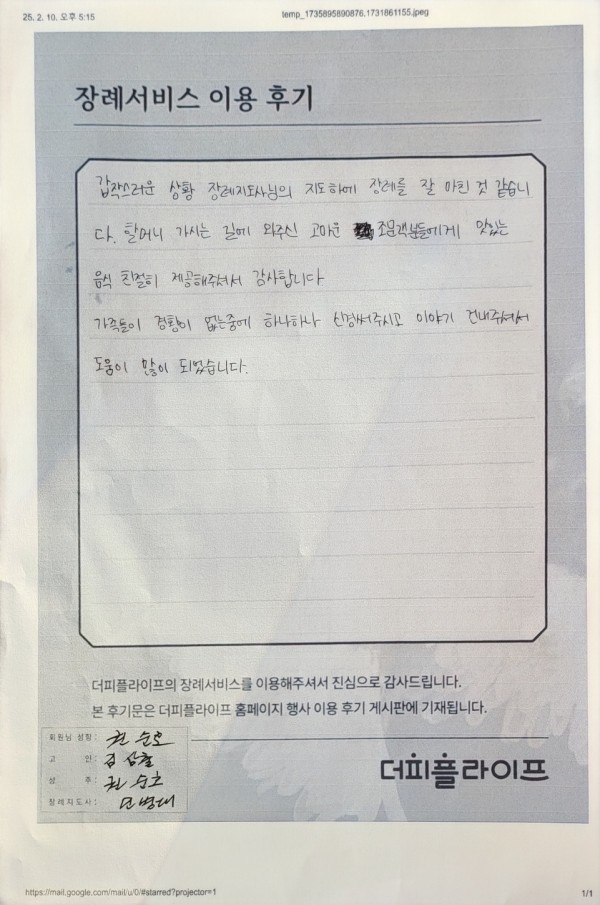 25. 2. 10. 오후 5:15
temp_1735895890876.1731861155.jpeg
장례서비스 이용 후기
갑작스러운 상황 장례지도사님의 지도하에 장례를 잘 마친 것 같습니
다. 할머니 가시는 길에 와주신 고마운 조문객분들에게 맛있는
음식 친절히 제공해주셔서 감사합니다
가족들이 경황이 없는중에 하나하나 신경써주시고 이야기 건내주셔서
도움이 많이 되었습니다.
더피플라이프의 장례서비스를 이용해주셔서 진심으로 감사드립니다.
본 후기문은 더피플라이프 홈페이지 행사 이용 후기 게시판에 기재됩니다.
회원님 성함: 권순호
고 인:
상 주: 권순호
장례지도사:
더피플라이프
https://mail.google.com/mail/u/0/#starred?projector=1
1/1